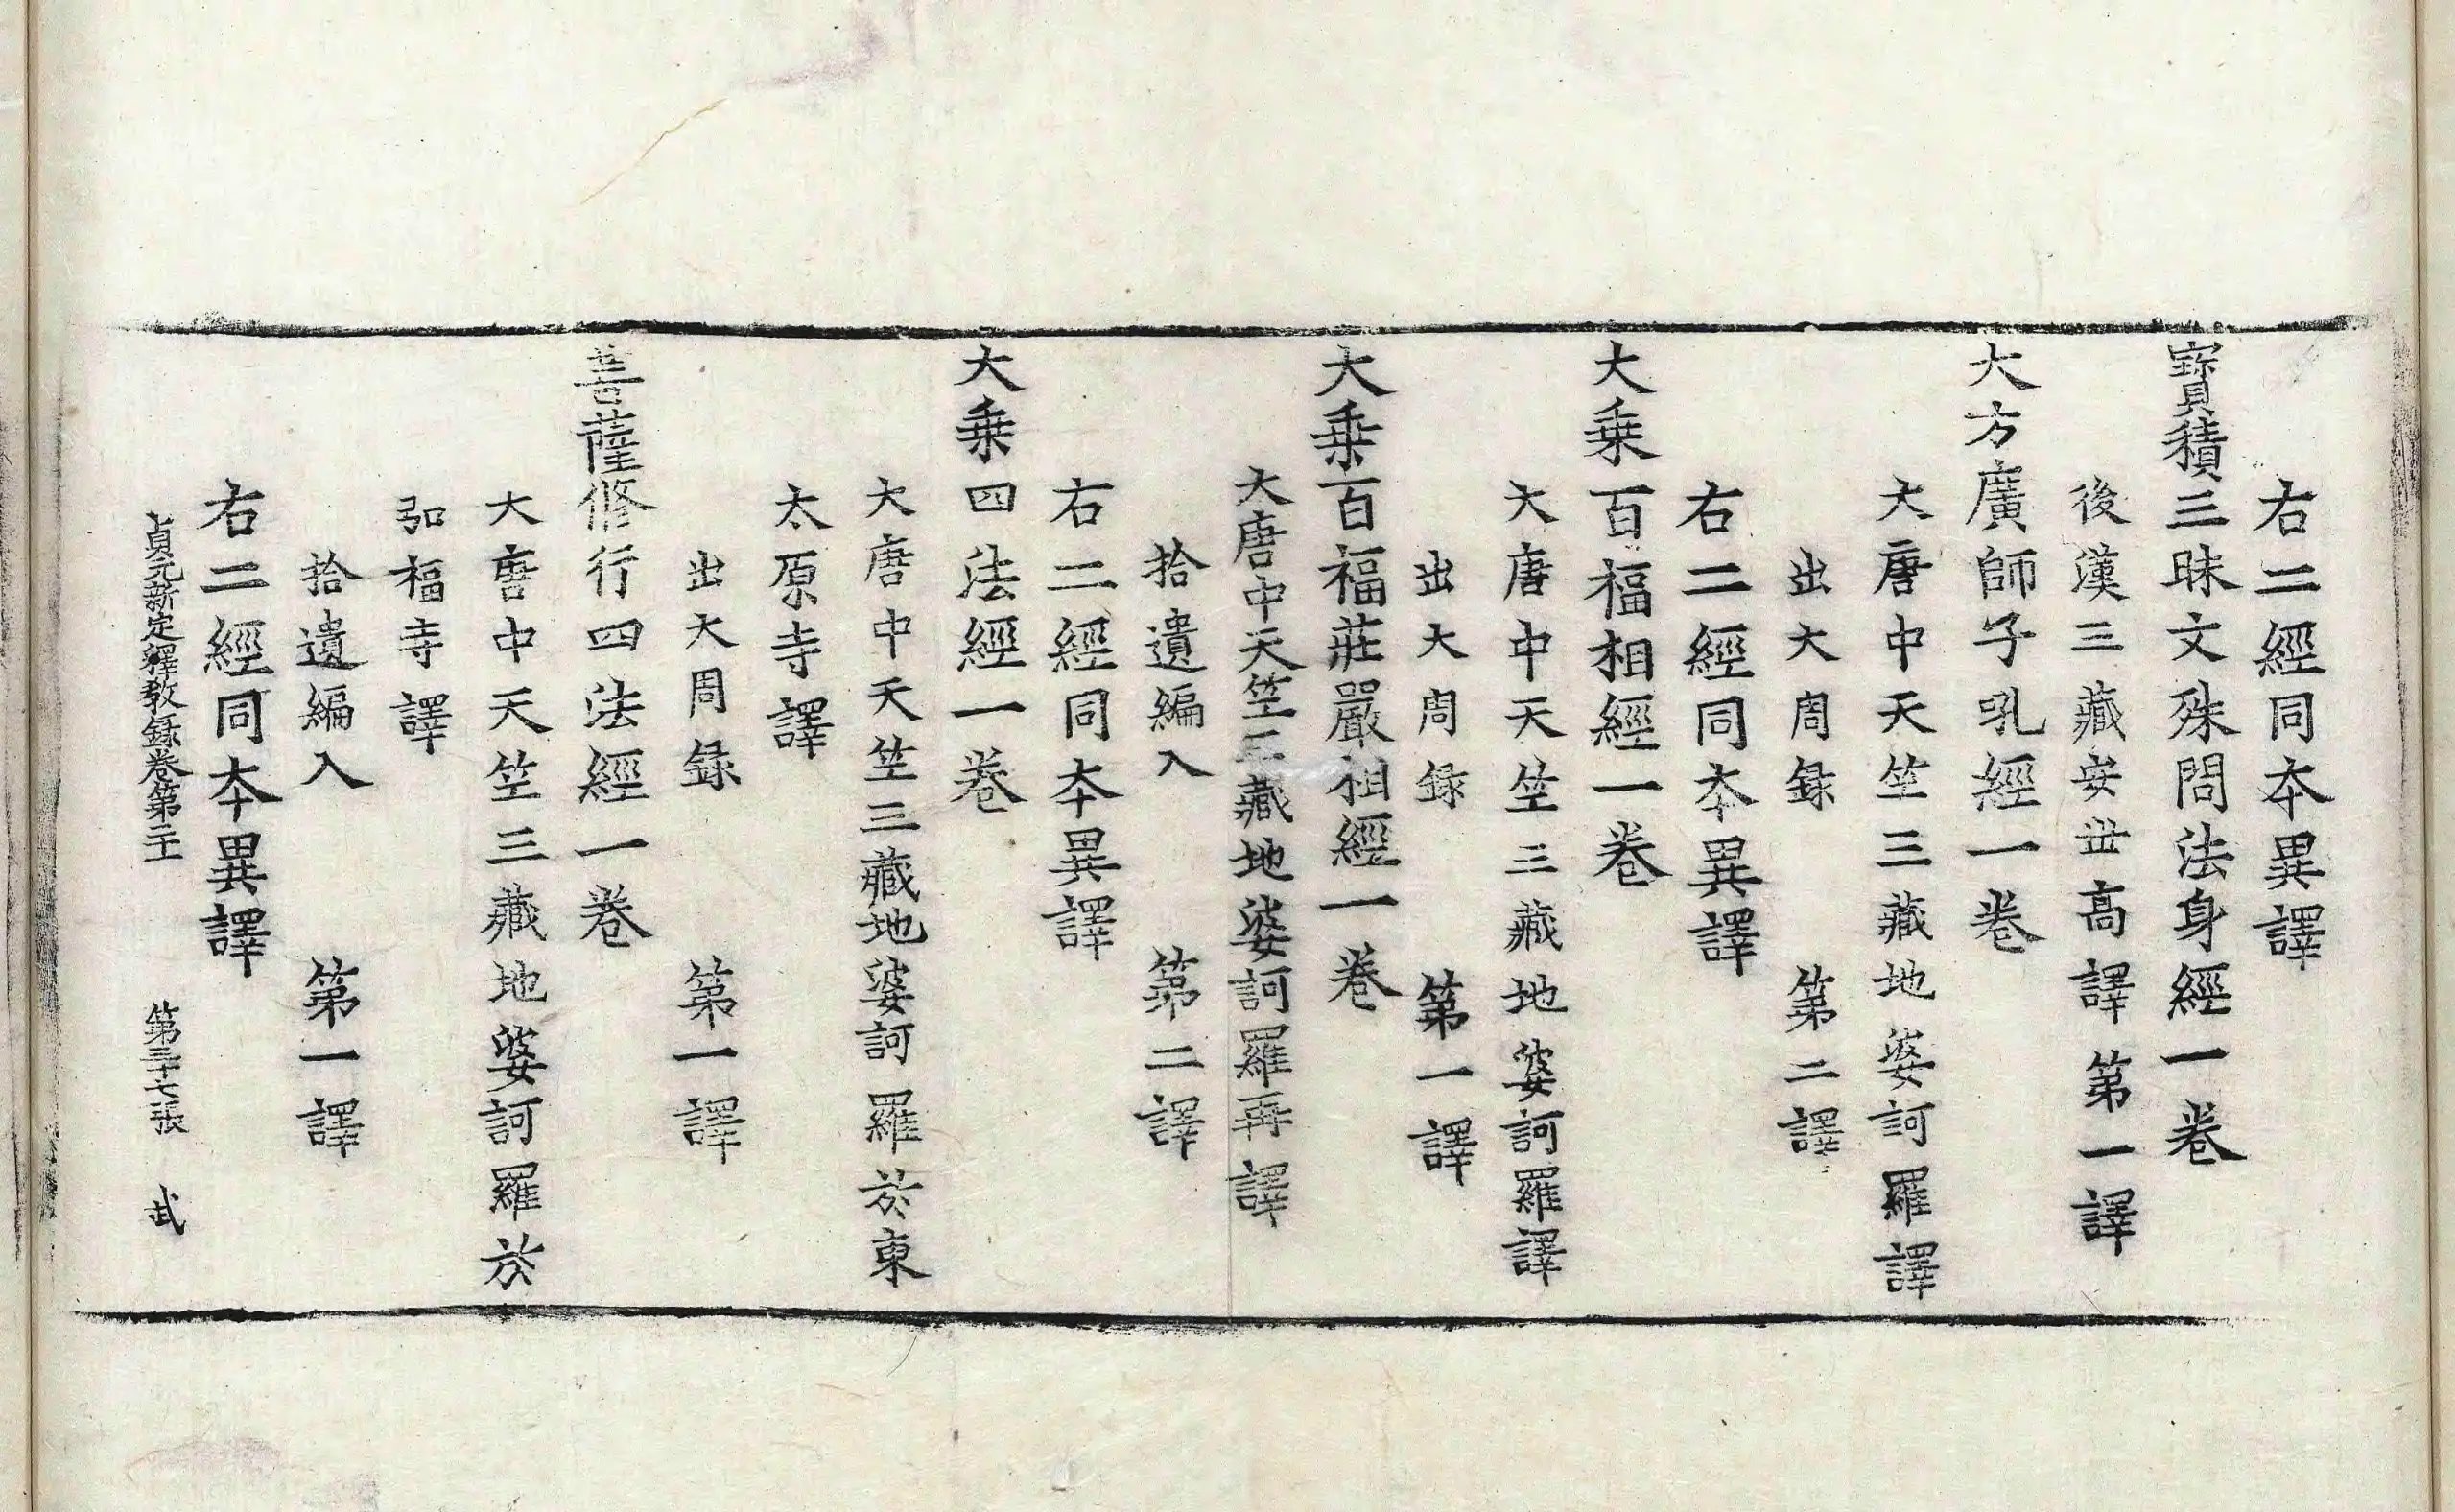 右二經同夲異譯
寶積三昧文殊問法身經一卷
後漢三藏安世高譯 第一譯
大方廣師子吼經一卷
大唐中天竺三藏地婆訶羅譯
出大周録 第二譯
右二經同夲異譯
大乗百福相經一卷
大唐中天竺三藏地婆訶羅譯
出大周録 第一譯
大乗百福莊嚴相經一卷
大唐中天竺三藏地婆訶羅再譯
拾遺編入 第二譯
右二經同夲異譯
大乗四法經一卷
大唐中天竺三藏地婆訶羅於東
太原寺譯
出大周録 第一譯
菩薩修行四法經一卷
大唐中天竺三藏地婆訶羅於
弘福寺譯
拾遺編入 第一譯
右二經同夲異譯
貞元新定釋教録卷第二十 第三十七張 武